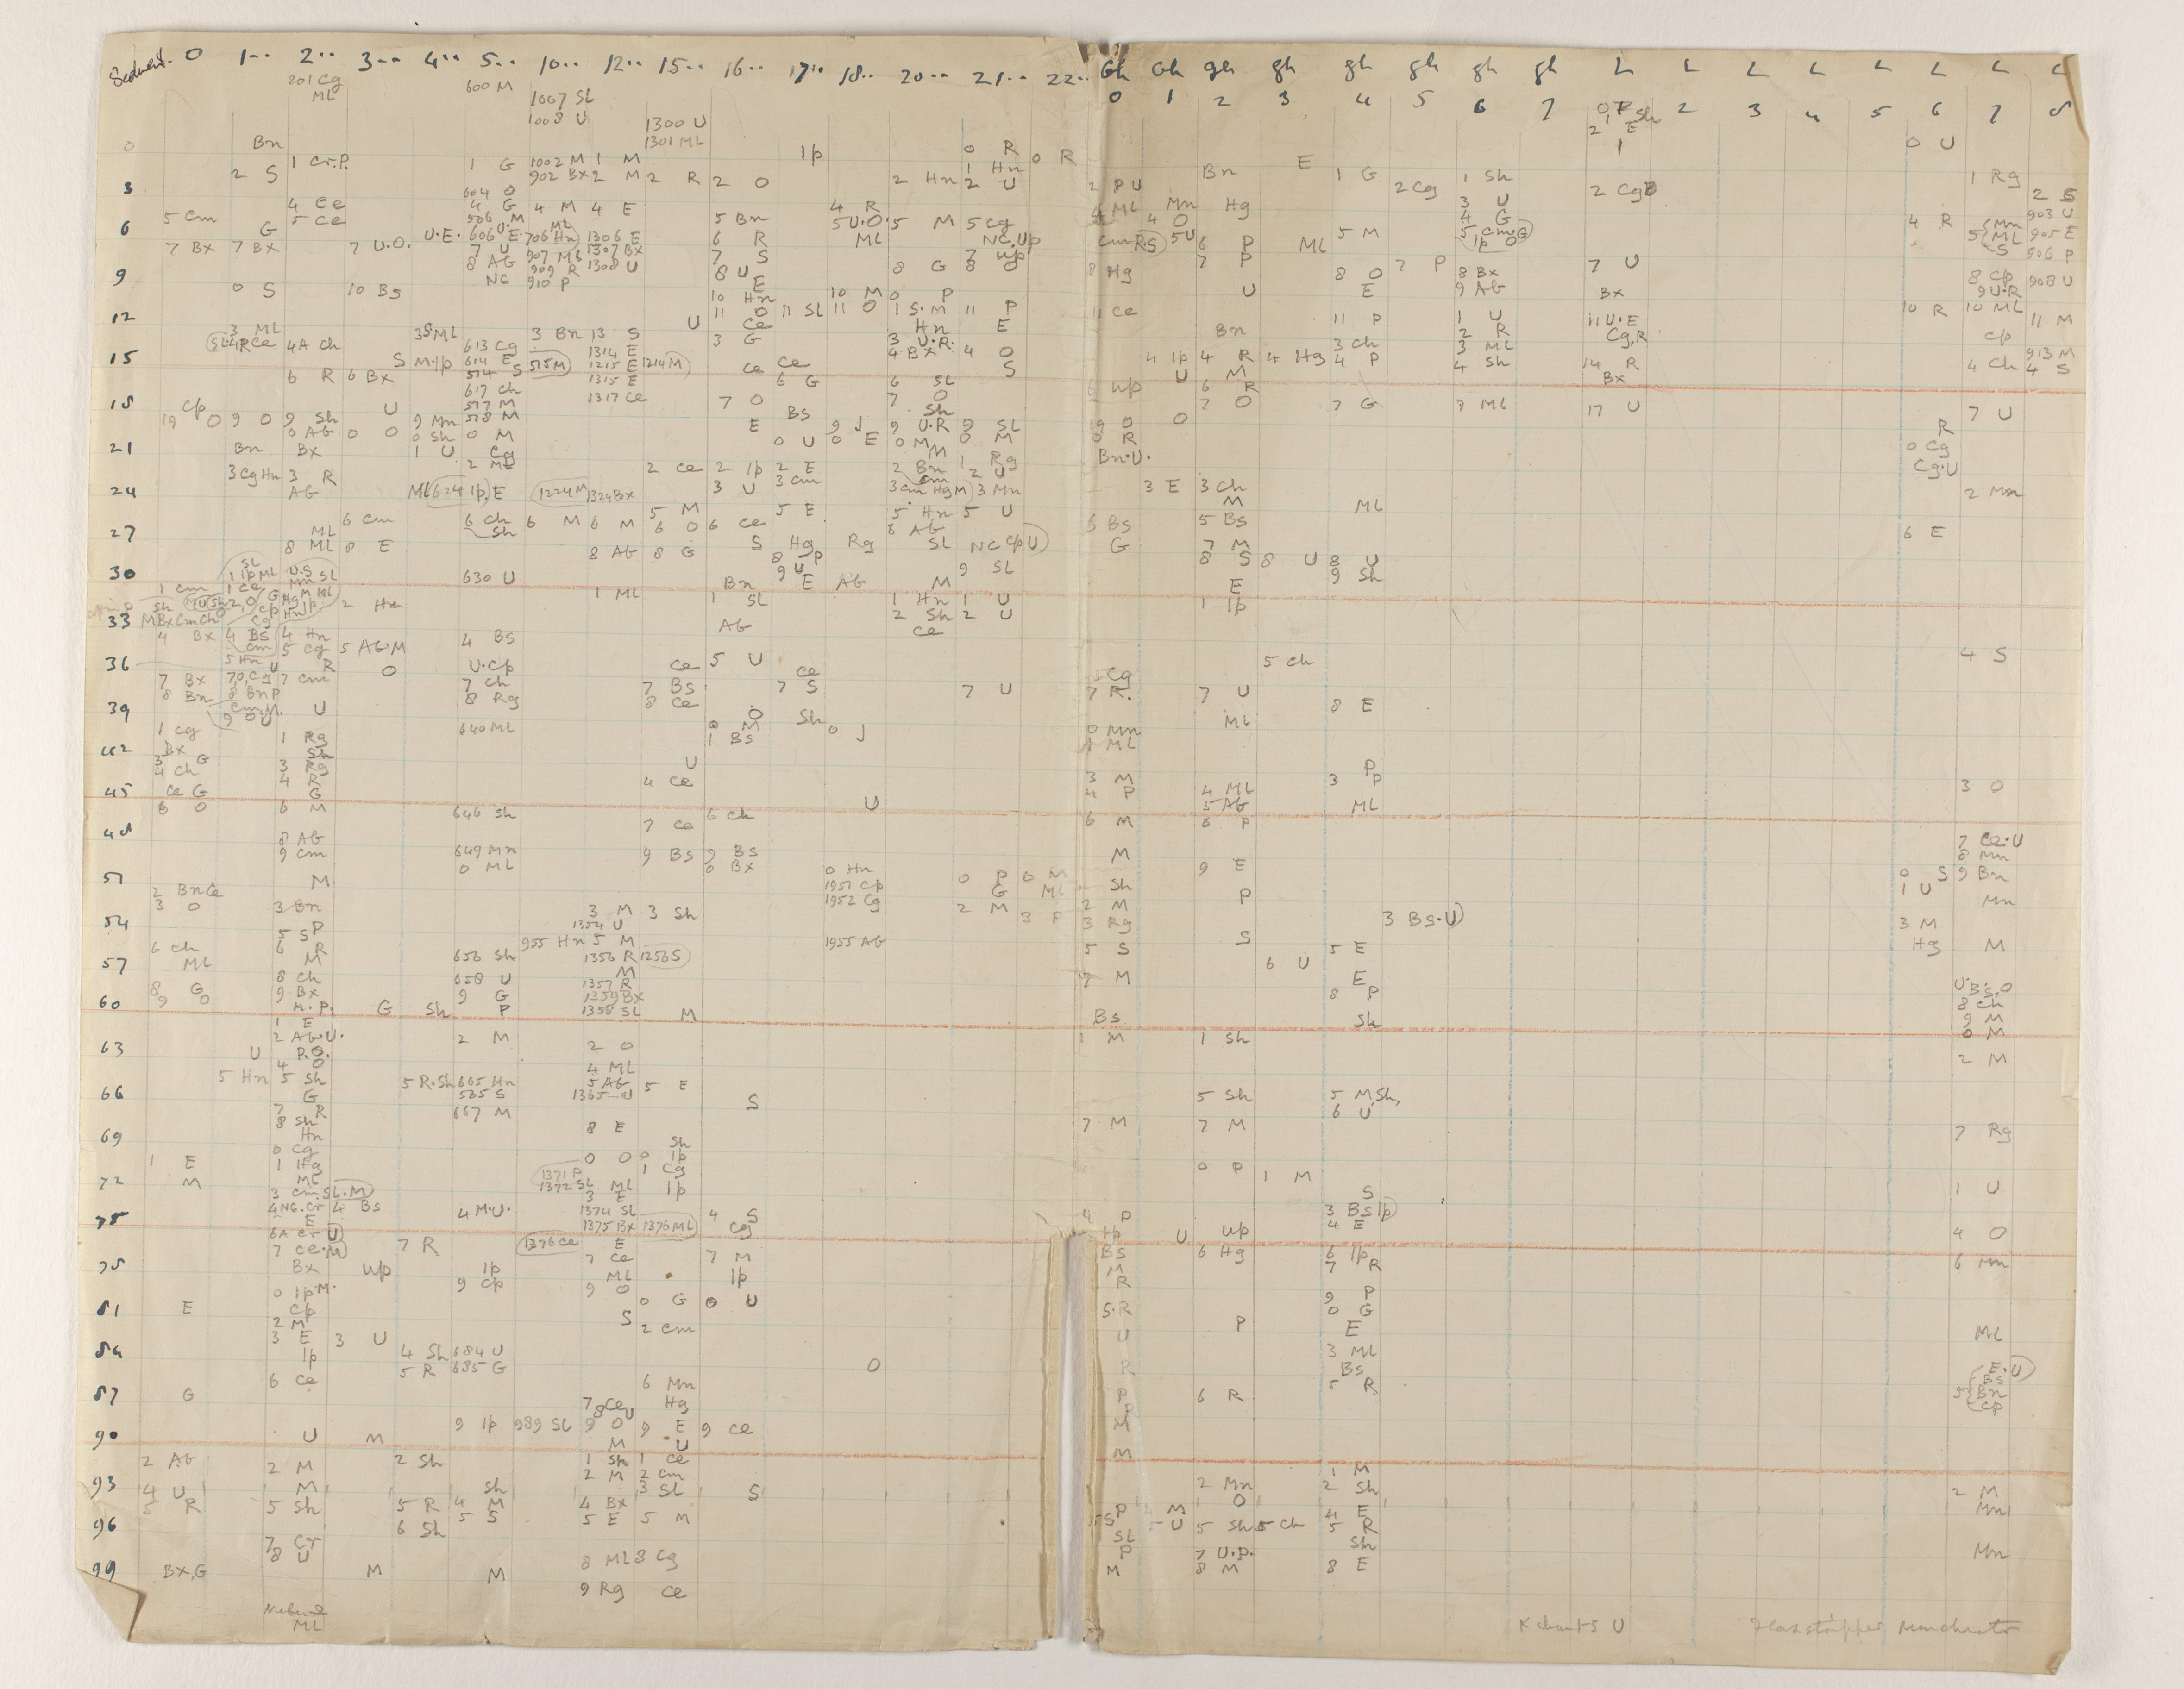 Sediment. 0 1-- 2-- 3-- 4-- 5-- 10-- 12-- 15-- 16-- 17-- 18-- 20-- 21-- 22-- Gh Gh gh gh gh gh gh gh L L L L L L L L
0 1 2 3 4 5 6 7 1 2 3 4 5 6 7 8
201 Cg 600 M
ML 1007 SL
1008 U 1300 U
1301 ML
0 Bn 1p 0 R 0 R E 0 U
1 Cr.P. 1 G 1002 M 1 M 1 Hn Bn 1 G 1 Sh 1 Rg
2 S 902 Bx 2 M 2 R 2 O 2 Hn 2 U 2 PU 2 Cg 2 S
3 604 O 3 U
4 Ce 4 G 4 M 4 E 4 R ML Mn Hg 4 G 903 U
5 Cm G 5 Ce 506 M ML 5 Bn 5 U.O. 5 M 5 Cg 4 O 4 R Mn
6 U.E. 606 E 706 Hn 1306 E 6 R ML NC.Up Cm R.S 5 U 6 P ML 5 M 1p O 5 ML 905 E
7 Bx 7 Bx 7 U.O. 7 U 907 ML 1307 Bx 7 S 7 Up 7 P S 906 P
8 AG 909 R 1308 U 8 U 8 G 8 O 8 Hg 8 O 7 P 8 Bx 7 U 8 Cp 908 U
9 NG 910 P E U E 9 AG Bx 9 U.R
0 S 10 Bs 10 Hn 10 M 0 P 10 R 10 ML
11 O 11 SL 11 O 1 S.M 11 P 11 Ce 11 P 1 U 11 U.E 11 M
12 U Ce Hn E Bn 2 R Cg.R Cp
3 ML 3 S ML 3 Bn 13 S 3 G 3 U.R. 3 Ch 3 ML
4R Ce 4A Ch 613 Cg 1314 E 4 Bx 4 O 4 1p 4 R 4 Hg 4 P 4 Sh 14 R 4 Ch 913 M
15 S M.1p 614 E 515 M 1215 E 1214 M Ce Ce S U M Bx 4 S
6 R 6 Bx 514 S 1315 E 6 G 6 SL Up 6 R
617 Ch 1317 Ce 7 O 7 O 7 O 7 G 7 ML 17 U 7 U
18 Cp U 517 M Bs Sh O
19 O 9 O 9 Sh 9 Mn 518 M E 9 J 9 U.R 9 SL 19 O R
0 AG 0 O 0 Sh 0 M 0 U 0 E 0 M 0 M 0 R 0 Cg
21 Bn Bx 1 U Cg M 1 Rg Bn.U. Cg.U
2 ML 2 Ce 2 1p 2 E 2 Bn 2 U
3 Cg Hn 3 R 3 U 3 Cm 3 Cm Hg M 3 Mn 3 E 3 Ch 2 Mn
24 AG ML 624 1p E 1224 M 1324 Bx M ML
5 M 5 E 5 Hn 5 U 5 Bs
6 Cm 6 Ch 6 M 6 M 6 O 6 Ce 6 AG Bs 6 E
27 ML Sh S Hg Rg SL NC Cp U G 7 M
8 ML 8 E 8 AG 8 G 8 P 8 S 8 U 8 U
SL 9 U 9 SL 9 Sh
30 1 1p ML U.S 630 U Bn E AG M E
1 Cm 1 Ce Mn SL 1 ML 1 SL 1 Hn 1 U 1 1p
Sh U Sh 2,0 G Hg M ML 2 Hn 2 Sh 2 U
33 M Bx Cm Ch O Cp Hn 1p AG Ce
4 Bx 4 Bs 4 Hn 4 Bs
Cm 5 Cg 5 AG.M 5 U 5 Ch 4 S
5 Hn
36 U R O U.Cp Ce Ce Cg
7 Bx 7 O,Cg 7 Cm 7 Ch 7 Bs 7 S 7 U 7 R. 7 U
8 Bn 8 Bn P 8 Rg 8 Ce 8 E
39 Cm M. U O Sh ML
9 O U
1 Cg 1 Rg 640 ML 0 M 0 J 0 Mn
1 Bs 1 ML
42 Bx Sh U P
3 G 3 Rg 3 M 3 P
4 Ch 4 R 4 Ce 4 P 4 ML 3 O
45 Ce G G U 5 AG ML
6 O 6 M 646 Sh 6 Ch 6 M 6 P
48 7 Ce 7 Ce.U
8 AG 8 Mn
9 Cm 649 Mn 9 Bs 9 Bs M 9 E 9 Bn
0 ML 0 Bx 0 Hn 0 P 0 M 0 S
51 M 1951 Cp G ML Sh 1 U
2 Bn Ce 1952 Cg 2 M 2 M P Mn
3 O 3 Bn 3 M 3 Sh 3 P 3 Rg 3 Bs.U 3 M
54 P 1354 U S Hg M
5 S 955 Hn 5 M 1955 AG 5 S 5 E
6 Ch 6 R 656 Sh 1356 R 1256 S 6 U
57 ML M M 7 M E
8 Ch 658 U 1357 R 8 P U.Bs.O
8 G 9 Bx 9 G 1359 Bx 8 Ch
60 9 O M.P. G Sh P 1358 SL M Bs Sh 9 M
1 E 0 M
2 AG.U. 2 M 2 O 1 M 1 Sh
63 U P.O. 2 M
4 O 4 ML
5 Hn 5 Sh 5 R.Sh 665 Hn 5 AG 5 E
66 G 565 S 1365 U S 5 Sh 5 M,Sh,
7 R 667 M 6 U
8 Sh 8 E 7 M 7 M 7 Rg
69 Hn Sh
0 Cg 0 O 0 1p
1 E 1 Hg 1371 P 1 Cg 0 P 1 M
72 M ML 1372 SL ML 1p S 1 U
3 Cm.SL.M 3 E
4 NG.Cr 4 Bs 4 M.U. 1374 SL 4 S 4 P 3 Bs 1p
75 E 1375 Bx 1376 ML Cg 1p U Up 4 E 4 O
6A Cr U 1376 Ce E
7 Ce.M 7 R 7 Ce 7 M Bs 6 Hg 6 1p 6 Mn
78 Bx Up 1p ML 1p M 7 R
9 Cp 9 O R
0 1p M. 0 G 0 U 9 P
81 E Cp S.R 0 G
2 M S 2 Cm P E
3 E 3 U U ML
84 1p 4 Sh 684 U 3 ML
5 R 685 G O R Bs E.U
6 Ce 6 Mn R Bs
87 G 7 Ce Hg P 6 R 5 Bn
8 U Cp
9 1p 989 SL 9 O 9 E 9 Ce M
90 U M M U M
2 AG 2 M 2 Sh 1 Sh 1 Ce 1 M
2 M 2 Cm
93 M Sh 3 SL S 2 Mn 2 Sh 2 M
4 U O Mn
5 R 5 Sh 5 R 4 M 4 Bx P M 4 E
96 6 Sh 5 S 5 E 5 M 5 S 5 U 5 Sh 5 Ch 5 R
7 Cr SL Sh
8 U 8 ML 8 Cg P 7 U.P. Mn
99 Bx,G M M M 8 M 8 E
9 Rg Ce
ML
U Manchester